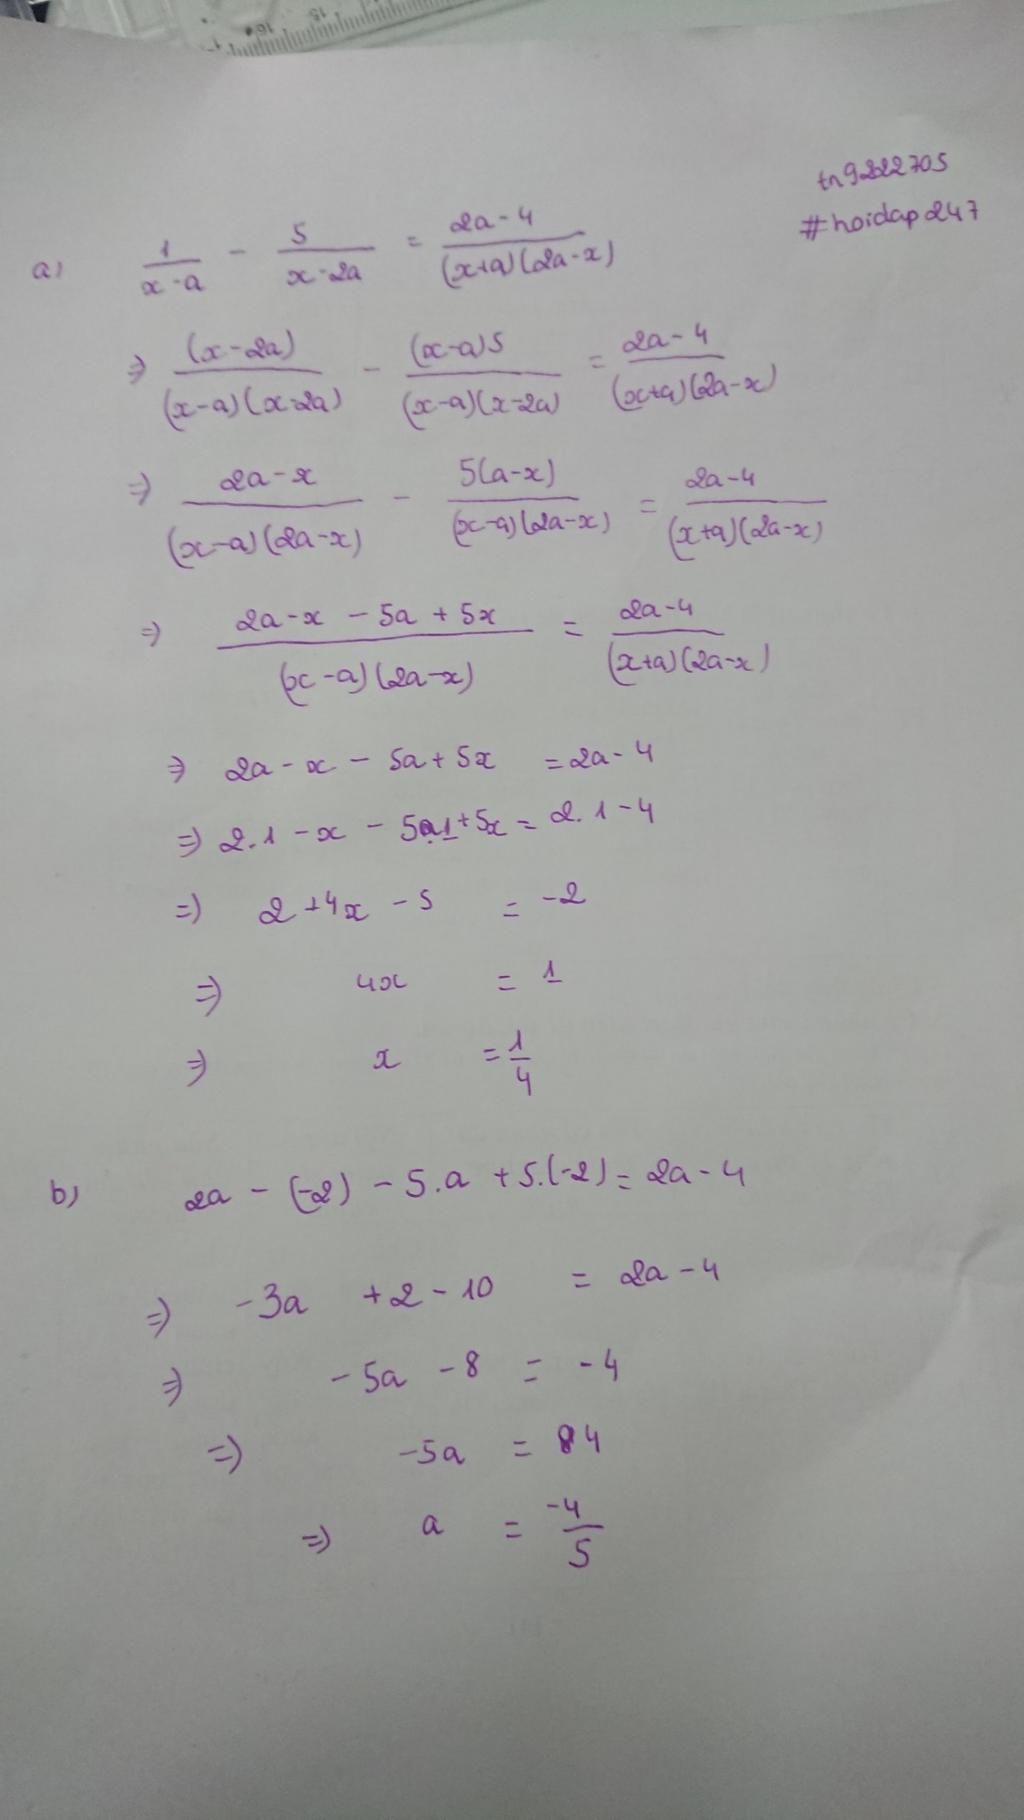 tn9222705
#hoidap247
a) 1/(x-a) - 5/(x-2a) = (2a-4)/((x+a)(2a-x))
=> (x-2a)/((x-a)(x-2a)) - (x-a)5/((x-a)(x-2a)) = (2a-4)/((x+a)(2a-x))
=> (2a-x)/((x-a)(2a-x)) - 5(a-x)/((x-a)(2a-x)) = (2a-4)/((x+a)(2a-x))
=> (2a-x - 5a + 5x)/((x-a)(2a-x)) = (2a-4)/((x+a)(2a-x))
=> 2a - x - 5a + 5x = 2a - 4
=> 2.1 - x - 5.1 + 5x = 2.1 - 4
=> 2 + 4x - 5 = -2
=> 4x = 1
=> x = 1/4
b) 2a - (-2) - 5.a + 5.(-2) = 2a - 4
=> -3a + 2 - 10 = 2a - 4
=> -5a - 8 = -4
=> -5a = 4
=> a = -4/5
16
15